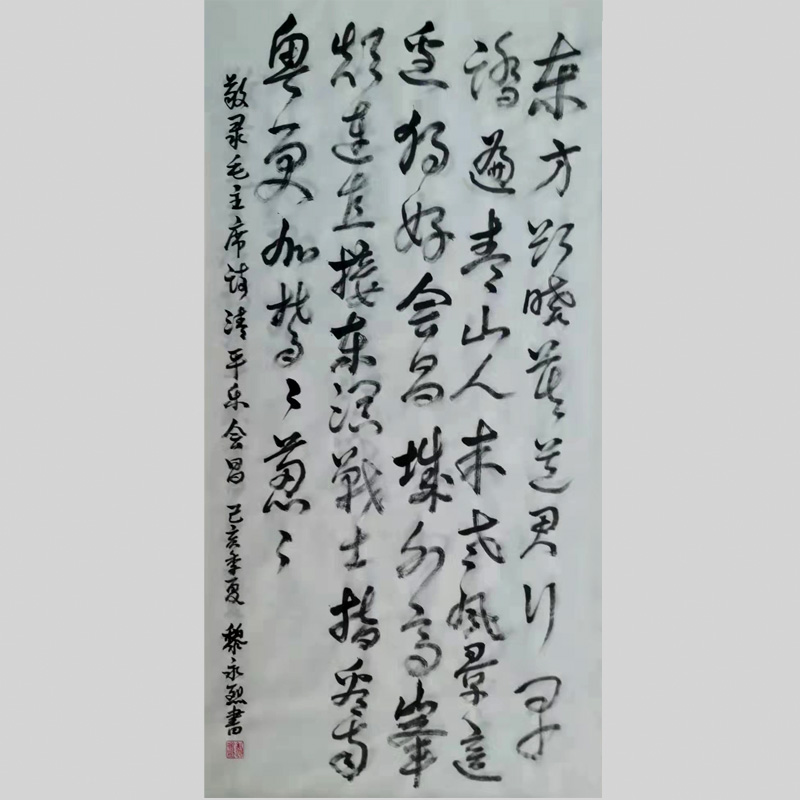 东方欲晓莫道君行早
踏遍青山人未老风景这
边独好会昌城外高峰
颠连直接东溟战士指看南
粤更加郁郁葱葱
敬录毛主席诗清平乐会昌 己亥季夏 黎永烈书